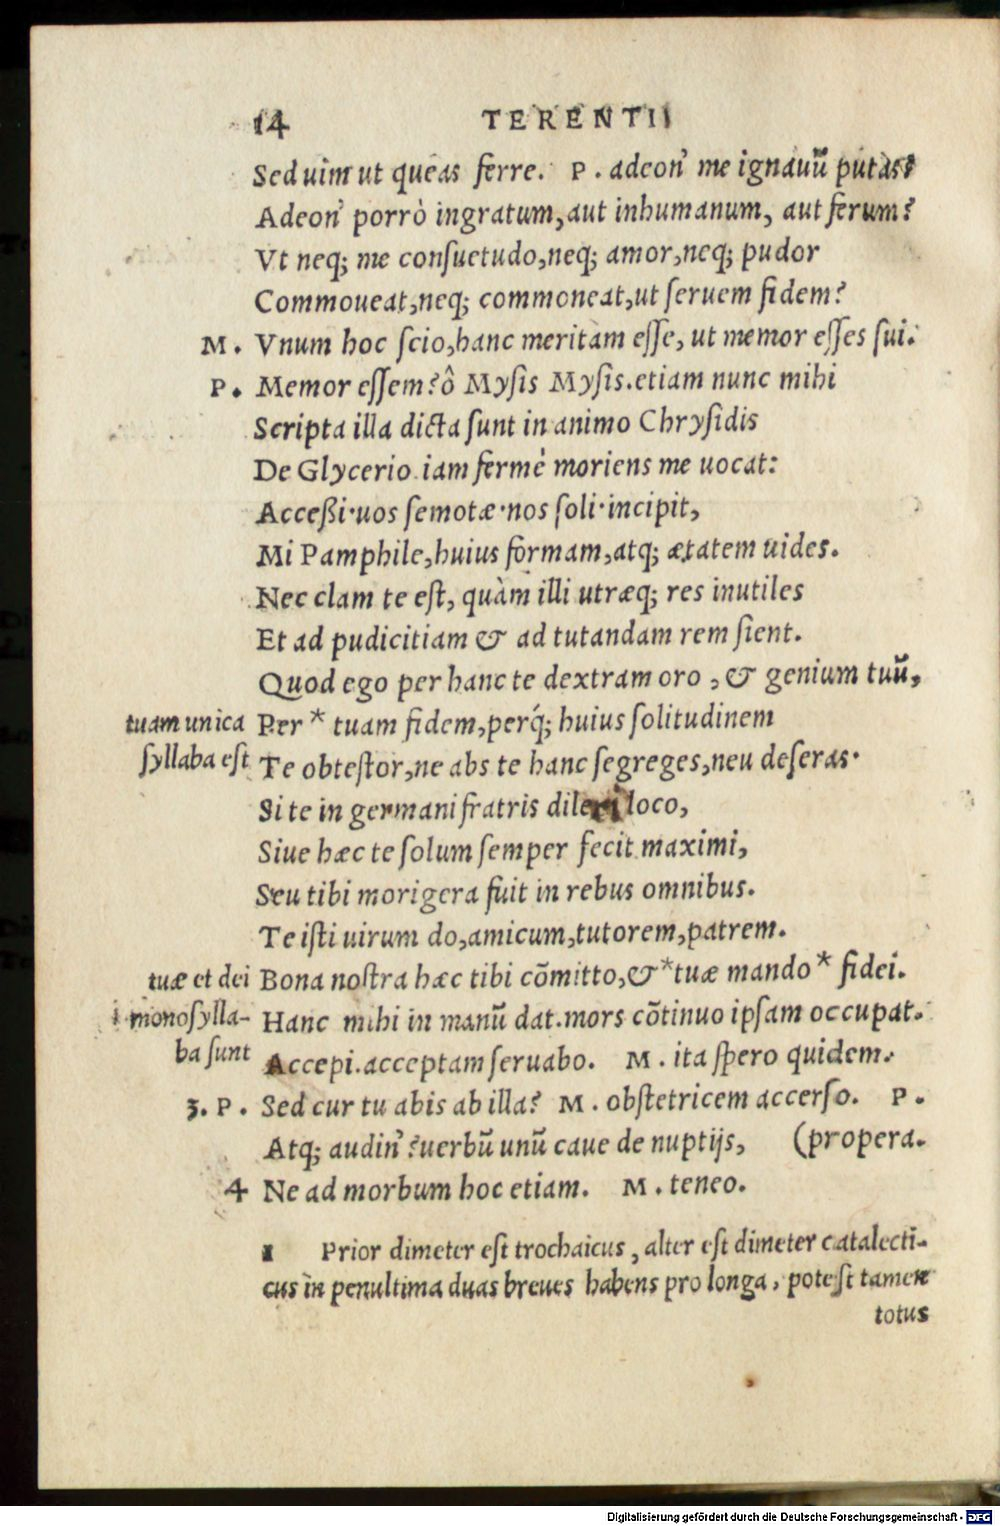 14 TERENTII
Sed uim ut queas ferre. P. adeon' me ignauũ putas?
Adeon' porrò ingratum, aut inhumanum, aut ferum?
Vt neq; me conſuetudo, neq; amor, neq; pudor
Commoueat, neq; commoneat, ut ſeruem fidem?
M. Vnum hoc ſcio, hanc meritam eſſe, ut memor eſſes ſui.
P. Memor eſſem? ô Myſis Myſis. etiam nunc mihi
Scripta illa dicta ſunt in animo Chryſidis
De Glycerio. iam fermè moriens me uocat:
Acceßi· uos ſemotæ· nos ſoli· incipit,
Mi Pamphile, huius formam, atq; ætatem uides.
Nec clam te eſt, quàm illi utræq; res inutiles
Et ad pudicitiam & ad tutandam rem ſient.
Quod ego per hanc te dextram oro, & genium tuũ,
tuam unica Per * tuam fidem, perq́; huius ſolitudinem
ſyllaba eſt Te obteſtor, ne abs te hanc ſegreges, neu deſeras·
Si te in germani fratris dilexi loco,
Siue hæc te ſolum ſemper fecit maximi,
Seu tibi morigera fuit in rebus omnibus.
Te iſti uirum do, amicum, tutorem, patrem.
tuæ et dei Bona noſtra hæc tibi cõmitto, & * tuæ mando * fidei.
i monoſylla- Hanc mihi in manũ dat. mors cõtinuo ipſam occupat.
ba ſunt Accepi. acceptam ſeruabo. M. ita ſpero quidem.
3. P. Sed cur tu abis ab illa? M. obſtetricem accerſo. P.
Atq; audin'? uerbũ unũ caue de nuptijs, (propera.
4 Ne ad morbum hoc etiam. M. teneo.
1 Prior dimeter eſt trochaicus, alter eſt dimeter catalecti-
cus in penultima duas breues habens pro longa, poteſt tamen
totus
Digitalisierung gefördert durch die Deutsche Forschungsgemeinschaft - DFG